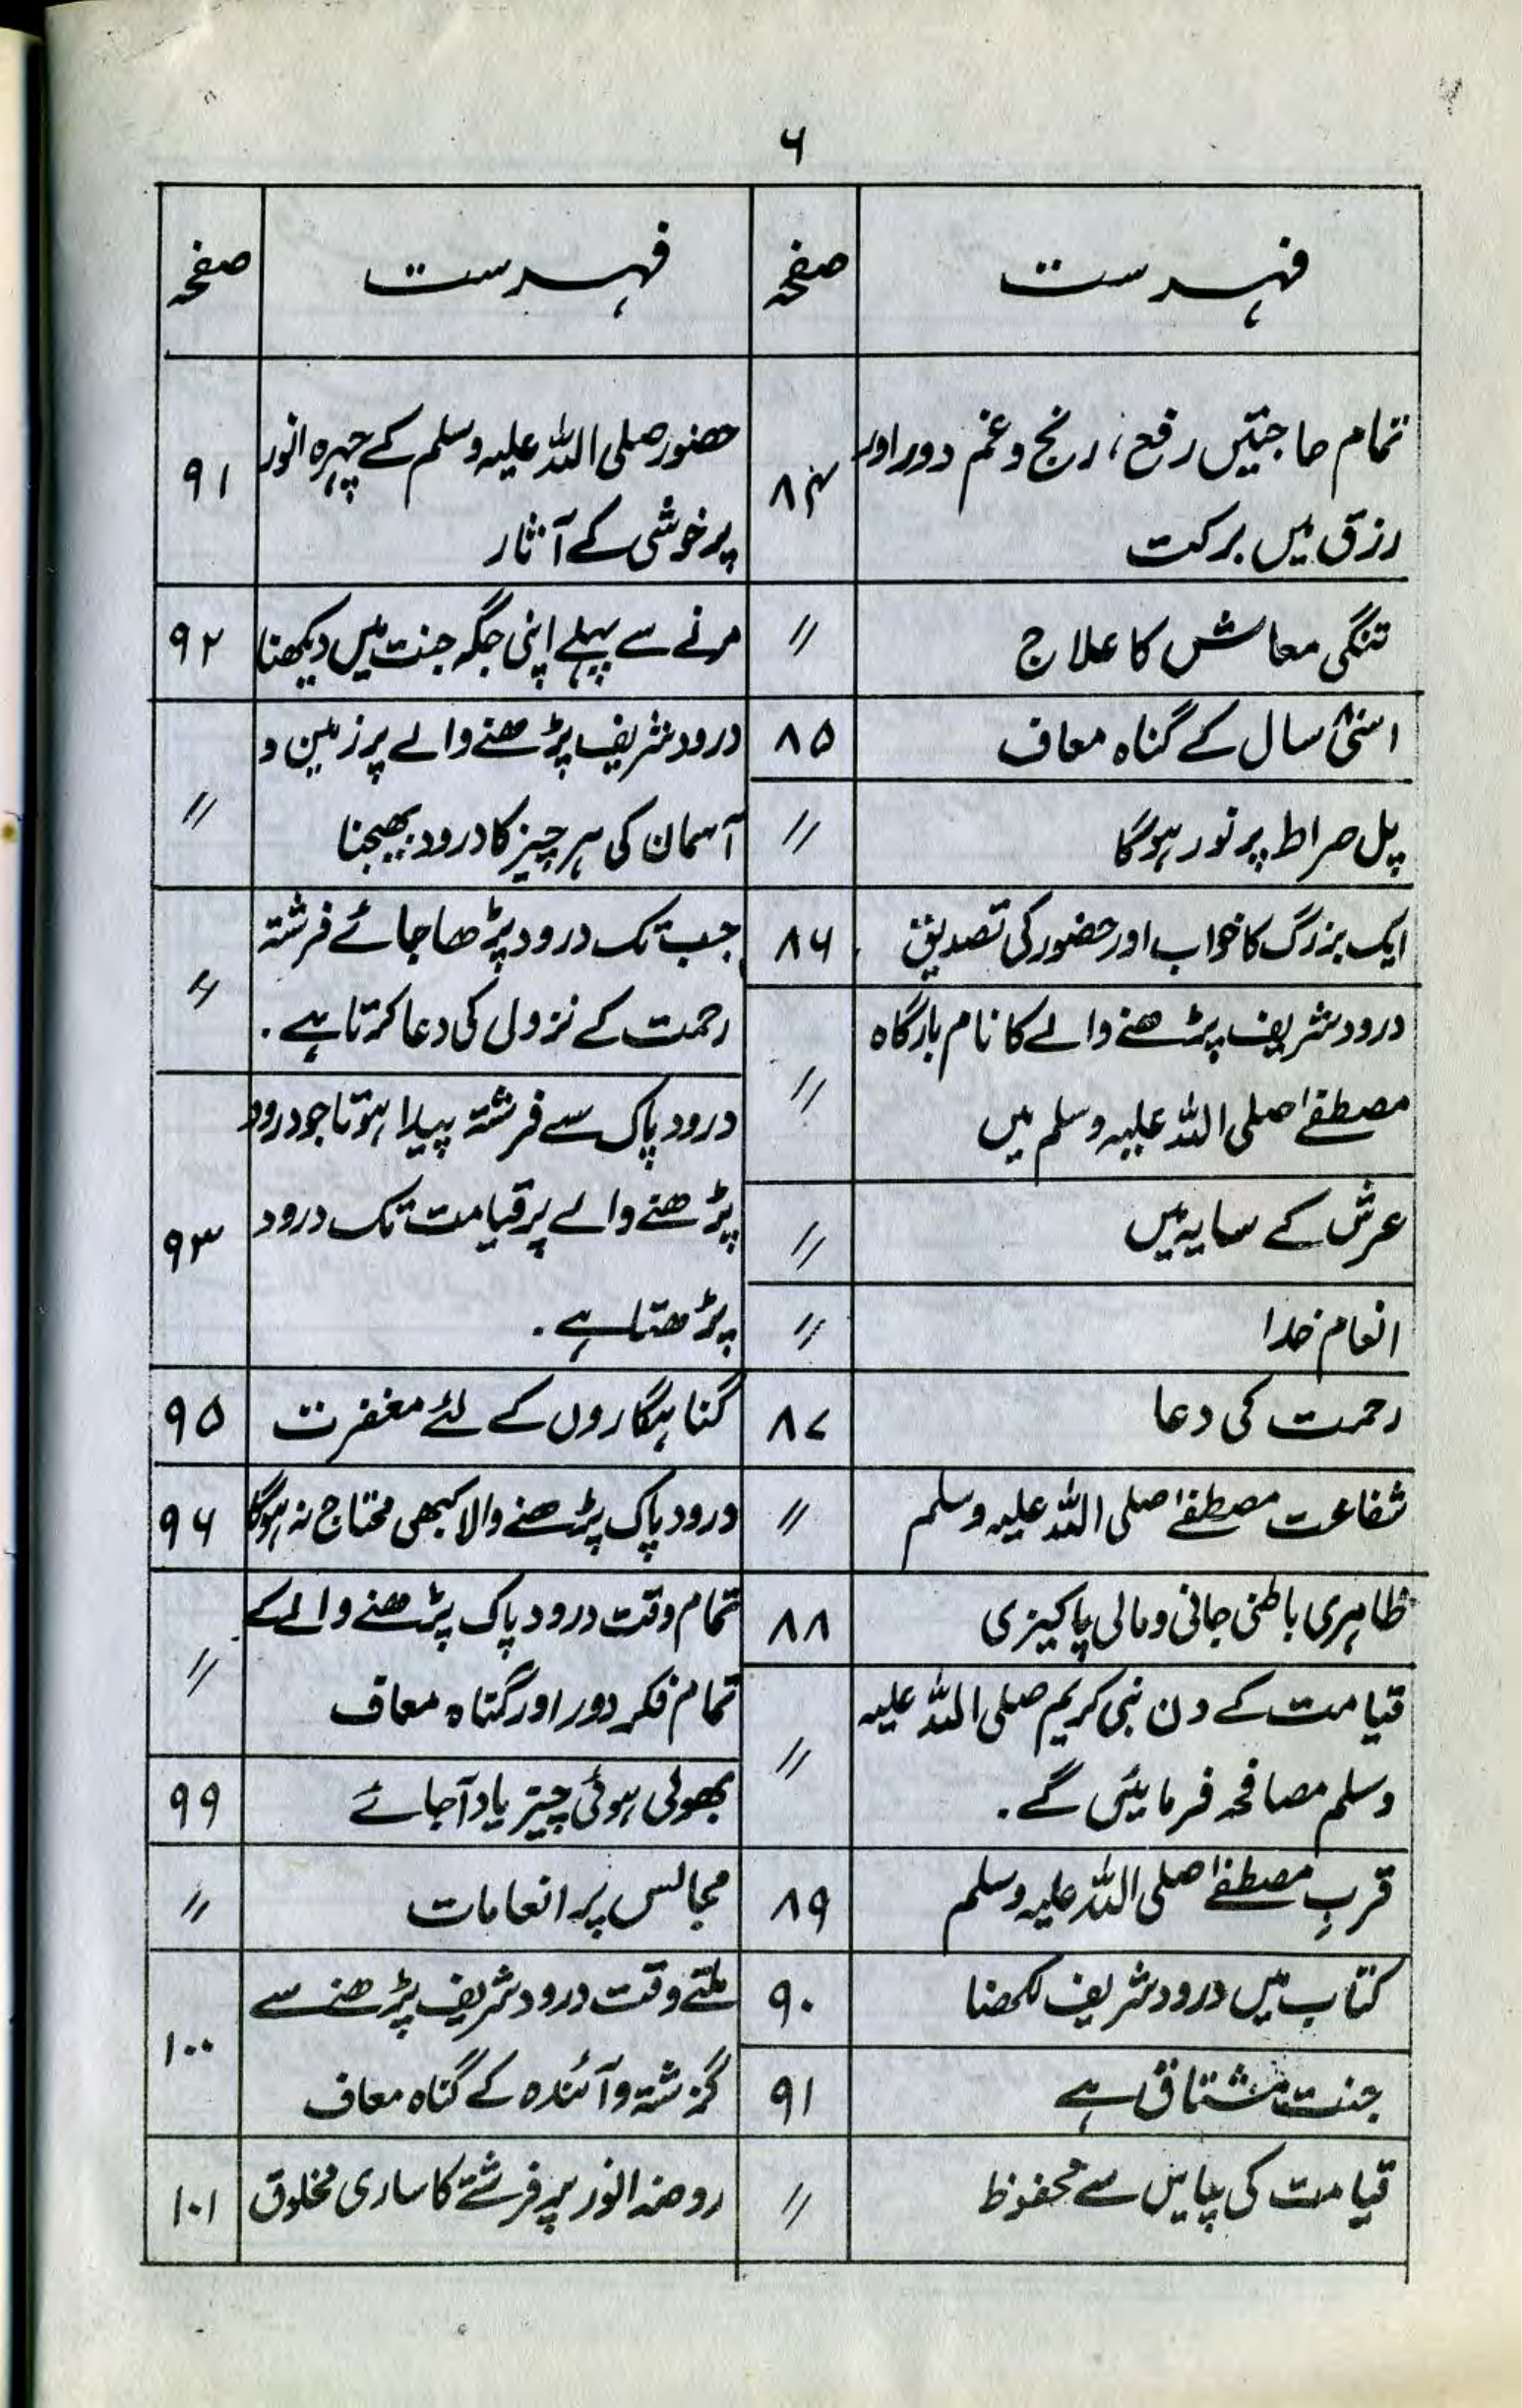 ۶
فہرست صفحہ
تمام حاجتیں رفع، رنج و غم دور اور
رزق میں برکت ۸۴
تنگی معاش کا علاج //
اسّی ۸۰ سال کے گناہ معاف ۸۵
پل صراط پر نور ہوگا //
ایک بزرگ کا خواب اور حضور کی تصدیق ۸۶
درود شریف پڑھنے والے کا نام بارگاہ
مصطفےٰ صلی اللہ علیہ وسلم میں //
عرش کے سایہ میں //
انعام خدا //
رحمت کی دعا ۸۷
شفاعت مصطفےٰ صلی اللہ علیہ وسلم //
ظاہری باطنی جانی و مالی پاکیزی ۸۸
قیامت کے دن نبی کریم صلی اللہ علیہ
وسلم مصافحہ فرمائیں گے۔ //
قربِ مصطفےٰ صلی اللہ علیہ وسلم ۸۹
کتاب میں درود شریف لکھنا ۹۰
جنت مشتاق ہے ۹۱
قیامت کی پیاس سے محفوظ //
فہرست صفحہ
حضور صلی اللہ علیہ وسلم کے چہرہ انور
پر خوشی کے آثار ۹۱
مرنے سے پہلے اپنی جگہ جنت میں دیکھنا ۹۲
درود شریف پڑھنے والے پر زمین و
آسمان کی ہر چیز کا درود بھیجنا //
جب تک درود پڑھا جائے فرشتہ
رحمت کے نزول کی دعا کرتا ہے۔ //
درود پاک سے فرشتہ پیدا ہوتا جو درود
پڑھنے والے پر قیامت تک درود
پڑھتا ہے۔ ۹۳
گناہگاروں کے لئے مغفرت ۹۵
درود پاک پڑھنے والا کبھی محتاج نہ ہوگا ۹۶
تمام وقت درود پاک پڑھنے والے کے
تمام فکر دور اور گناہ معاف //
بھولی ہوئی چیز یاد آجائے ۹۹
مجالس پر انعامات //
ملتے وقت درود شریف پڑھنے سے
گزشتہ و آئندہ کے گناہ معاف ۱۰۰
روضہ انور پر فرشتے کا ساری مخلوق ۱۰۱